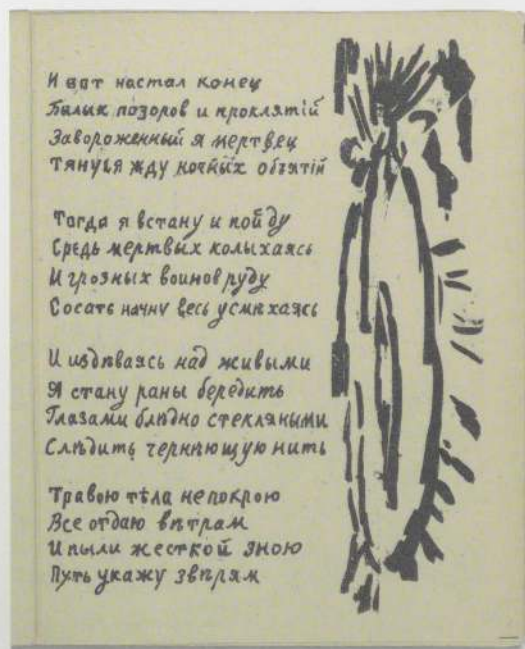 И вот настал конец
Былых позоров и проклятій
Завороженный я мертвец
Тянуся жду ночных объятій
Тогда я встану и пойду
Средь мертвых колыхаясь
И грозных воинов руду
Сосать начну весь усмѣхаясь
И издѣваясь над живыми
Я стану раны бередить
Глазами блѣдно стекляными
Слѣдить чернѣющую нить
Травою тѣла не покрою
Все отдаю вѣтрам
И пыли жесткой зною
Путь укажу звѣрям